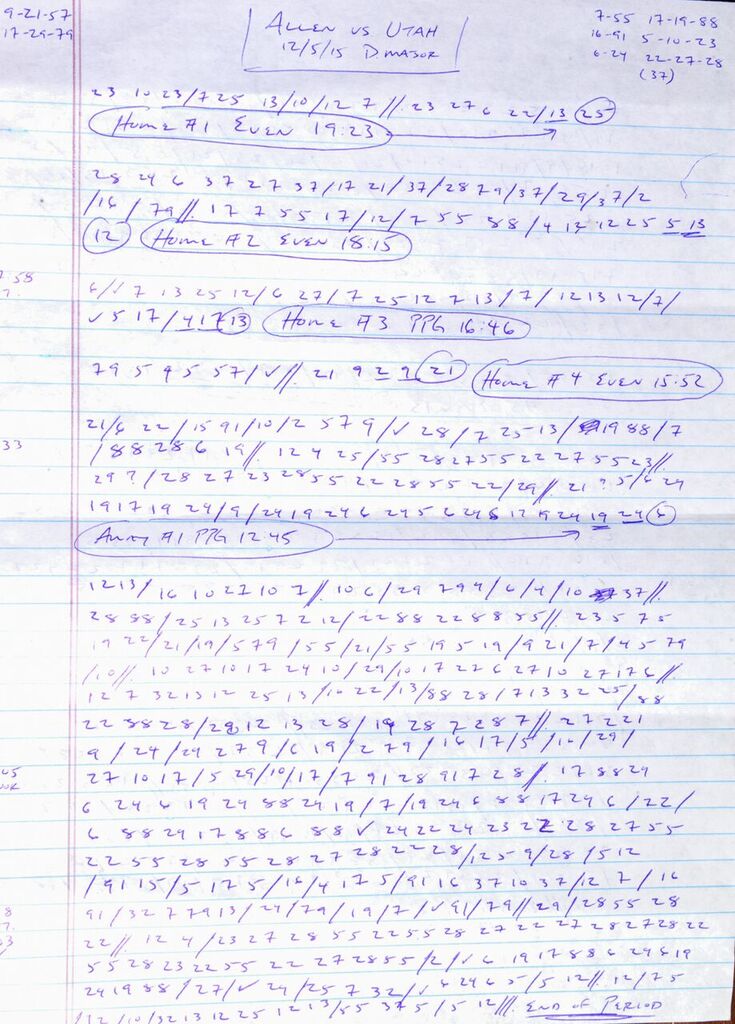 9-21-57
17-29-79
ALLEN VS UTAH
12/5/15 D. MAJOR
7-55 17-19-88
16-91 5-10-23
6-24 22-27-28
(37)
23 10 23/7 25 13/10/12 7 // 23 27 6 22/13 25
Home #1 Even 19:23
28 24 6 37 27 37/17 21/37/28 79/37/29/37/2
/16 / 79// 17 7 55 17/12/7 55 88/4 12 12 25 5 13
12 Home #2 Even 18:15
6/✓ 7 13 25 12/6 27/7 25 12 7 13/7/12 13 12/7/
✓ 5 17/4 17 13 Home #3 PPG 16:46
79 5 9 5 57/✓// 21 9 2 9 21 Home #4 Even 15:52
21/6 22/15 91/10/2 57 9/✓ 28/7 25 13/ 19 88/7
/88 28 6 19// 12 4 25/55 28 27 55 22 27 55 23//
29 ?/28 27 23 28 55 22 28 55 22/29// 21 ? 5/6 24
19 17 19 24/9/24 19 24 6 24 5 6 24 6 12 9 24 19 24 6
Away #1 PPG 12:45
12 13/ 16 10 27 10 7// 10 6/29 79 4/6/4/10 37//
28 88/25 13 25 7 2 12/22 88 22 88 55// 23 5 7 5
19 22/21/19/5 79 /55/21/55 19 5 19/9 21/7/4 5 79
/10// 10 27 10 17 24 10/29/10 17 27 6 27 10 27 17 6//
12 7 32 13 12 25 13/10 22/13/88 28/7 13 32 25/88
22 88 28/29 12 13 28/19 28 7 28 7// 27 2 21
9/24/24 27 9/6 19/2 79/16 17/5/10/29/
27 10 17/5 29/10/17/7 91 28 91 7 28// 17 88 24
6 24 6 19 24 88 24 19/7/19 24 6 88 17 24 6/22/
6 88 24 17 88 6 88 ✓ 24 22 24 23 22 28 27 55
22 55 28 55 28 27 28 22 28/12 5 9/28/5 12
/91 15/5 17 5/16/4 17 5/91 16 37 10 37/12 7/16
91/32 7 79 13/24/79/19/7/✓ 91/79// 29/28 55 28
22// 12 4/23 27 28 55 22 55 28 27 22 27 28 27 28 22
55 28 23 22 55 22 27 28 55/2/✓ 6 19 17 88 6 24 6 19
24 19 88/27/✓ 24/25 7 32/✓ 6 24 6 5/5 12// 12/7 5
/12/10/32 13 12 25 12 13/55 37 5/5 12/// END OF PERIOD
58
7.
33